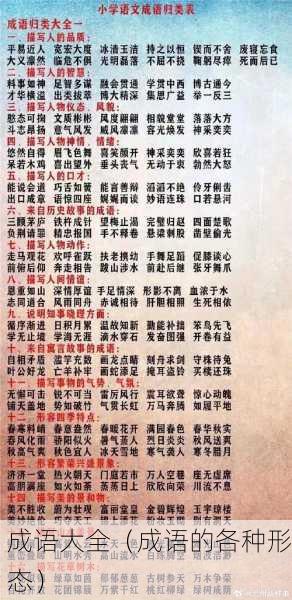 小学语文成语归类表
成语归类大全一
一、描写人的品质：
平易近人 宽宏大度 冰清玉洁 持之以恒 锲而不舍 废寝忘食
大义凛然 临危不俱 光明磊落 不屈不挠 鞠躬尽瘁 死而后已
二、描写人的智慧：
料事如神 足智多谋 融会贯通 学贯中西 博古通今
才华横溢 出类拔萃 博大精深 集思广益 举一反三
三、描写人物仪态、风貌：
憨态可掬 文质彬彬 风度翩翩 相貌堂堂 落落大方
斗志昂扬 意气风发 威风凛凛 容光焕发 神采奕奕
四、描写人物神情、情绪：
悠然自得 眉飞色舞 喜笑颜开 神采奕奕 欣喜若狂
呆若木鸡 喜出望外 垂头丧气 无动于衷 勃然大怒
五、描写人的口才：
能说会道 巧舌如簧 能言善辩 滔滔不绝 伶牙俐齿
出口成章 语惊四座 娓娓而谈 妙语连珠 口若悬河
六、来自历史故事的成语：
三顾茅庐 铁杵成针 望梅止渴 完璧归赵 四面楚歌
负荆请罪 精忠报国 手不释卷 悬梁刺股 凿壁偷光
七、描写人物动作：
走马观花 欢呼雀跃 扶老携幼 手舞足蹈 促膝谈心
前俯后仰 奔走相告 跋山涉水 前赴后继 张牙舞爪
八、描写人间情谊：
恩重如山 深情厚谊 手足情深 形影不离 血浓于水
志同道合 风雨同舟 赤诚相待 肝胆相照 生死相依
九、说明知事晓理方面：
循序渐进 日积月累 温故知新 勤能补拙 笨鸟先飞
学无止境 学海无涯 滴水穿石 发奋图强 开卷有益
十、来自寓言故事的成语：
自相矛盾 滥竽充数 画龙点睛 刻舟求剑 守株待兔
叶公好龙 亡羊补牢 画蛇添足 掩耳盗铃 买椟还珠
十一、描写事物的气势、气氛：
无懈可击 锐不可当 雷厉风行 震耳欲聋 惊心动魄
铺天盖地 势如破竹 气贯长虹 万马奔腾 如履平地
十二、形容四季特点：
春寒料峭 春意盎然 春暖花开 满园春色 春华秋实
春风化雨 骄阳似火 暑气蒸人 烈日炎炎 秋风送爽
秋高气爽 秋色宜人 冰天雪地 寒气袭人 寒冬腊月
十三、形容繁荣兴盛景象：
济济一堂 热火朝天 门庭若市 万人空巷 座无虚席
高朋满座 如火如荼 蒸蒸日上 欣欣向荣 川流不息
十四、描写美的景和物：
成语大全（成语的各种形
态）